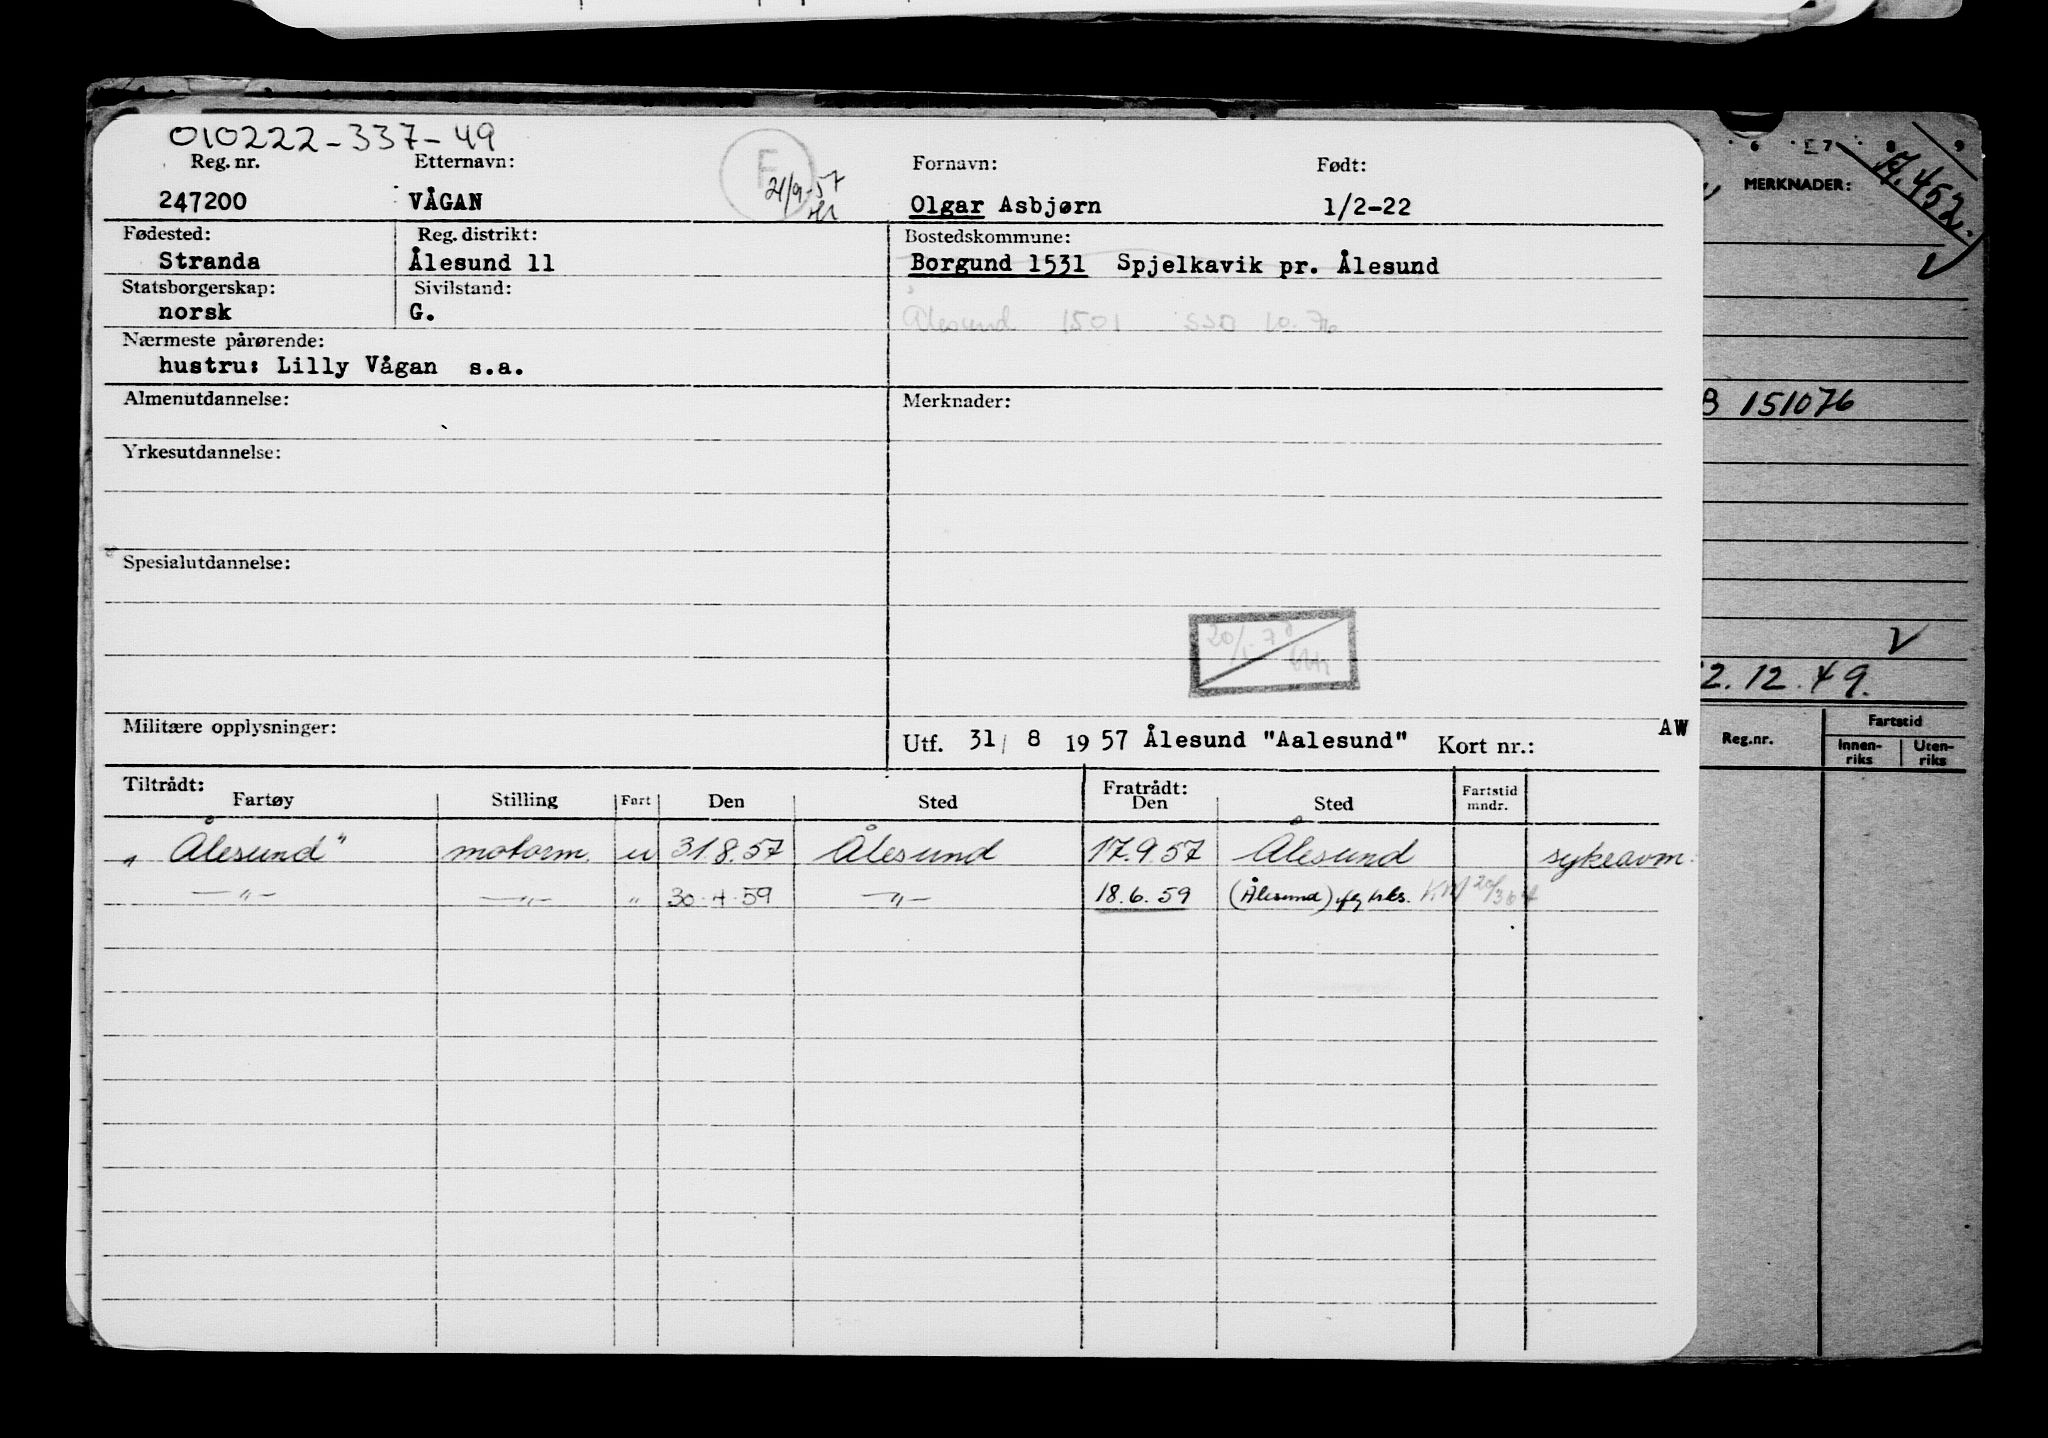 010222-337-49
Reg. nr. Etternavn: Fornavn: Født:
247200 VÅGAN F 21/9-57 Olgar Asbjørn 1/2-22
Fødested: Reg. distrikt: Bostedskommune:
Stranda Ålesund 11 Borgund 1531 Spjelkavik pr. Ålesund
Statsborgerskap: Sivilstand:
norsk G. Ålesund 1501 SSD 10.76
Nærmeste pårørende:
hustru: Lilly Vågan s.a.
Almenutdannelse: Merknader:
Yrkesutdannelse:
Spesialutdannelse:
Militære opplysninger: Utf. 31/ 8 19 57 Ålesund "Aalesund" Kort nr.: AW
Tiltrådt: Fratrådt:
Fartøy Stilling Fart Den Sted Den Sted Fartstid mndr.
„Ålesund" motorm. u 31.8.57 Ålesund 17.9.57 Ålesund sykeavm.
—„— —„— „ 30.4.59 —„— 18.6.59 (Ålesund)
6 7 8 9
MERKNADER: 452.
B 151076
2.12.49.
Reg.nr. Fartstid
Innen-riks Uten-riks